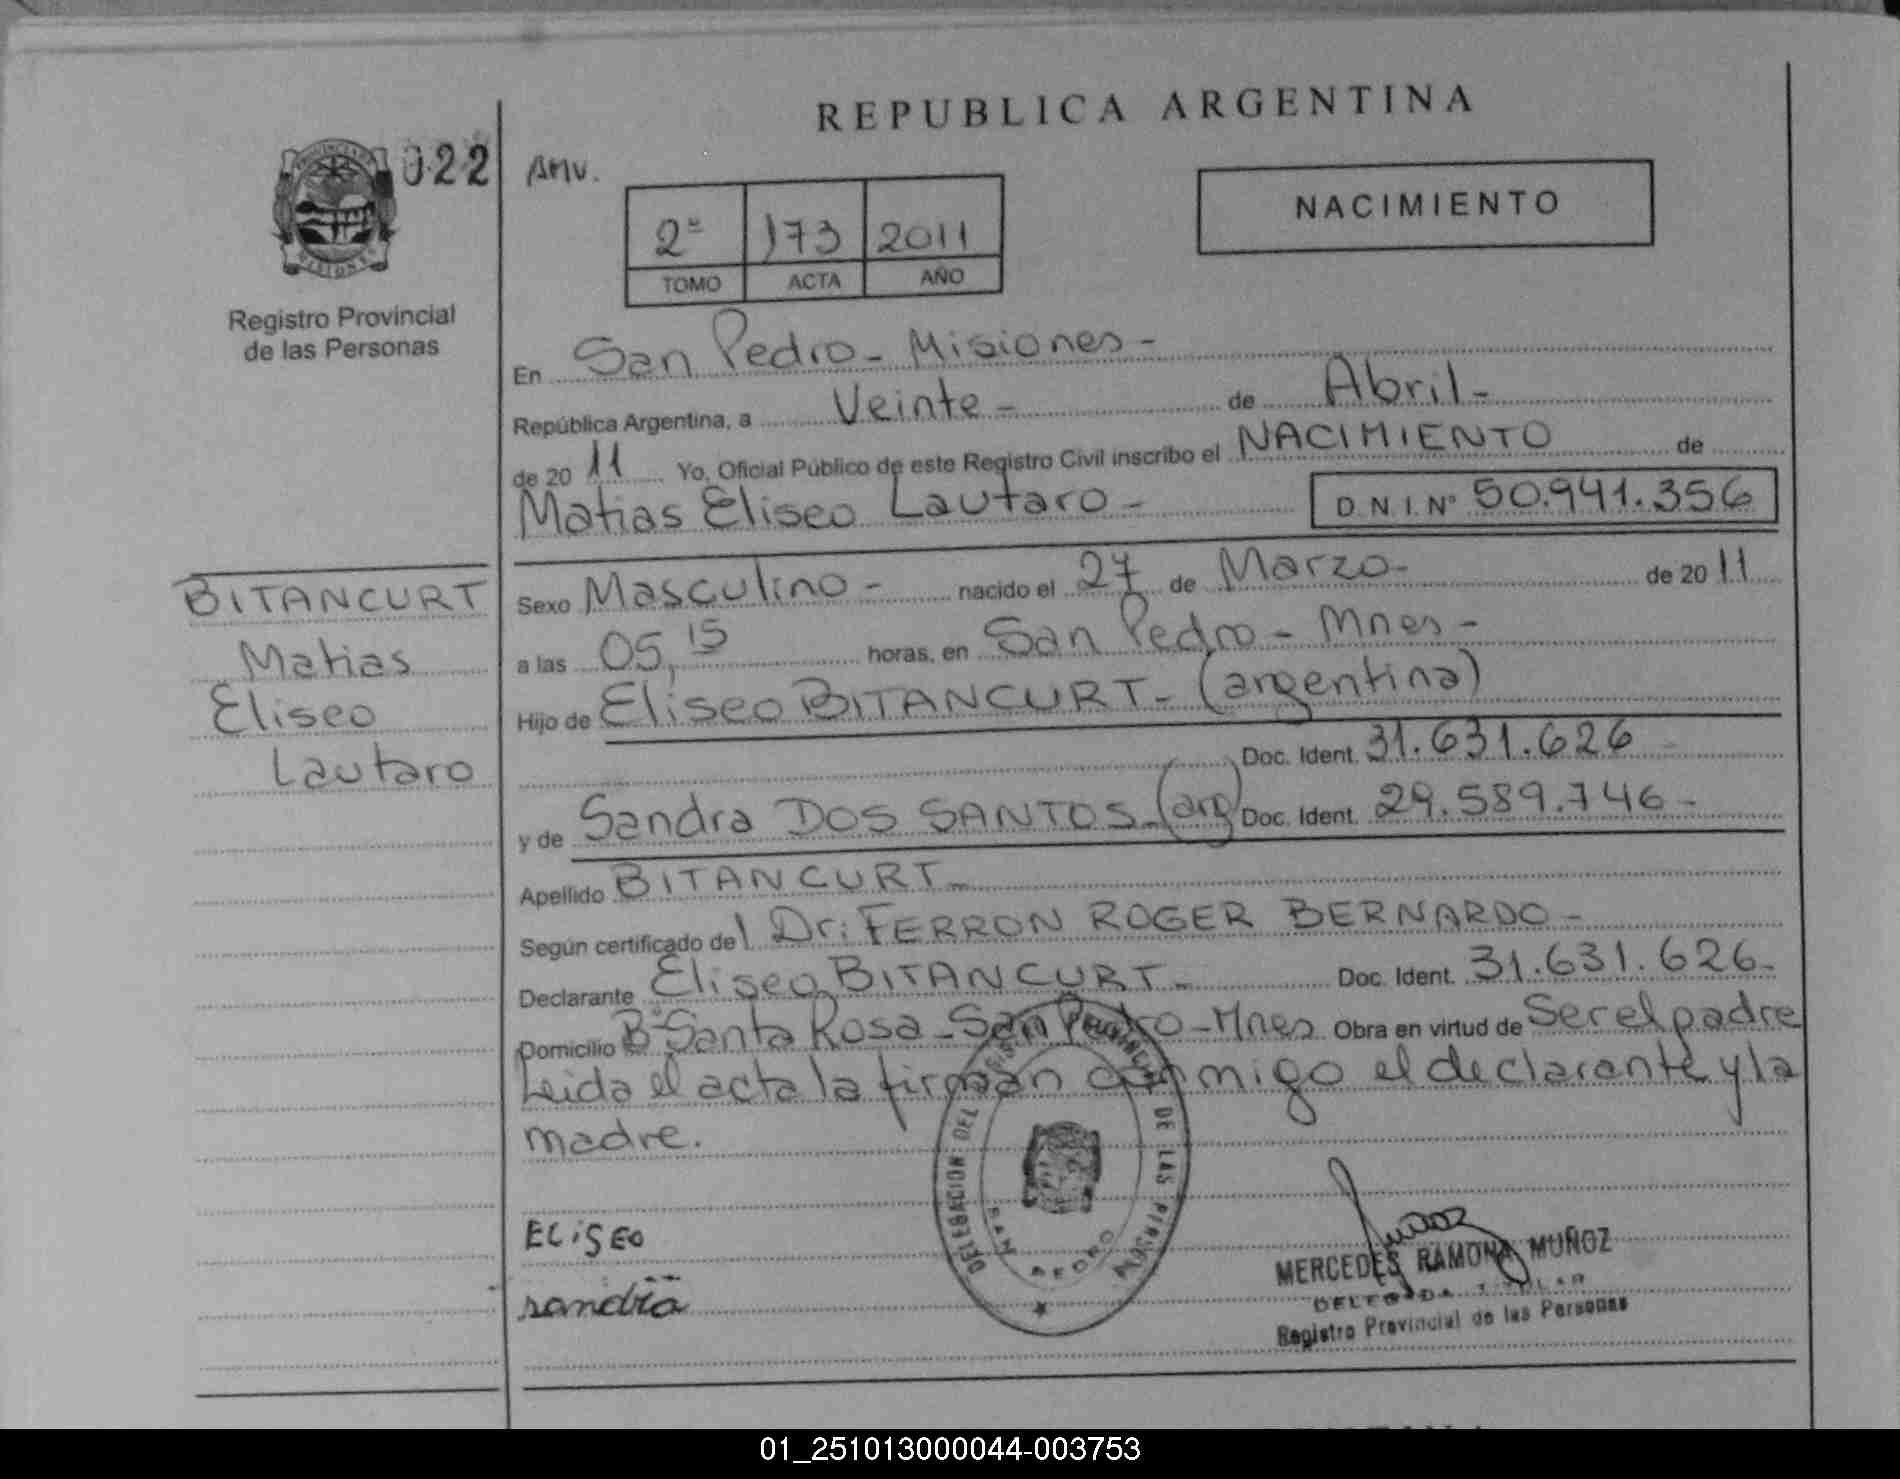 REPUBLICA ARGENTINA
022
AMV.
NACIMIENTO
2º 173 2011
TOMO ACTA AÑO
PROVINCIA DE MISIONES
Registro Provincial
de las Personas
En San Pedro - Misiones -
República Argentina, a Veinte - de Abril -
de 20 11 Yo, Oficial Público de este Registro Civil inscribo el NACIMIENTO de
Matias Eliseo Lautaro - D.N.I. Nº 50.941.356
BITANCURT
Matias
Eliseo
Lautaro
Sexo Masculino - nacido el 27 de Marzo - de 20 11
a las 05,15 horas, en San Pedro - Mnes -
Hijo de Eliseo BITANCURT - (argentina)
Doc. Ident. 31.631.626 -
y de Sandra DOS SANTOS - (arg) Doc. Ident. 29.589.746 -
Apellido BITANCURT -
Según certificado del Dr: FERRON ROGER BERNARDO -
Declarante Eliseo BITANCURT - Doc. Ident. 31.631.626 -
Domicilio Bº Santa Rosa - San Pedro - Mnes Obra en virtud de Ser el padre
Leida el acta la firman conmigo el declarante y la
madre.
DELEGACION DEL REGISTRO PROVINCIAL DE LAS PERSONAS
SAN PEDRO
ELiSEO
sandra
MERCEDES RAMONA MUÑOZ
DELEGADA TITULAR
Registro Provincial de las Personas
01_251013000044-003753